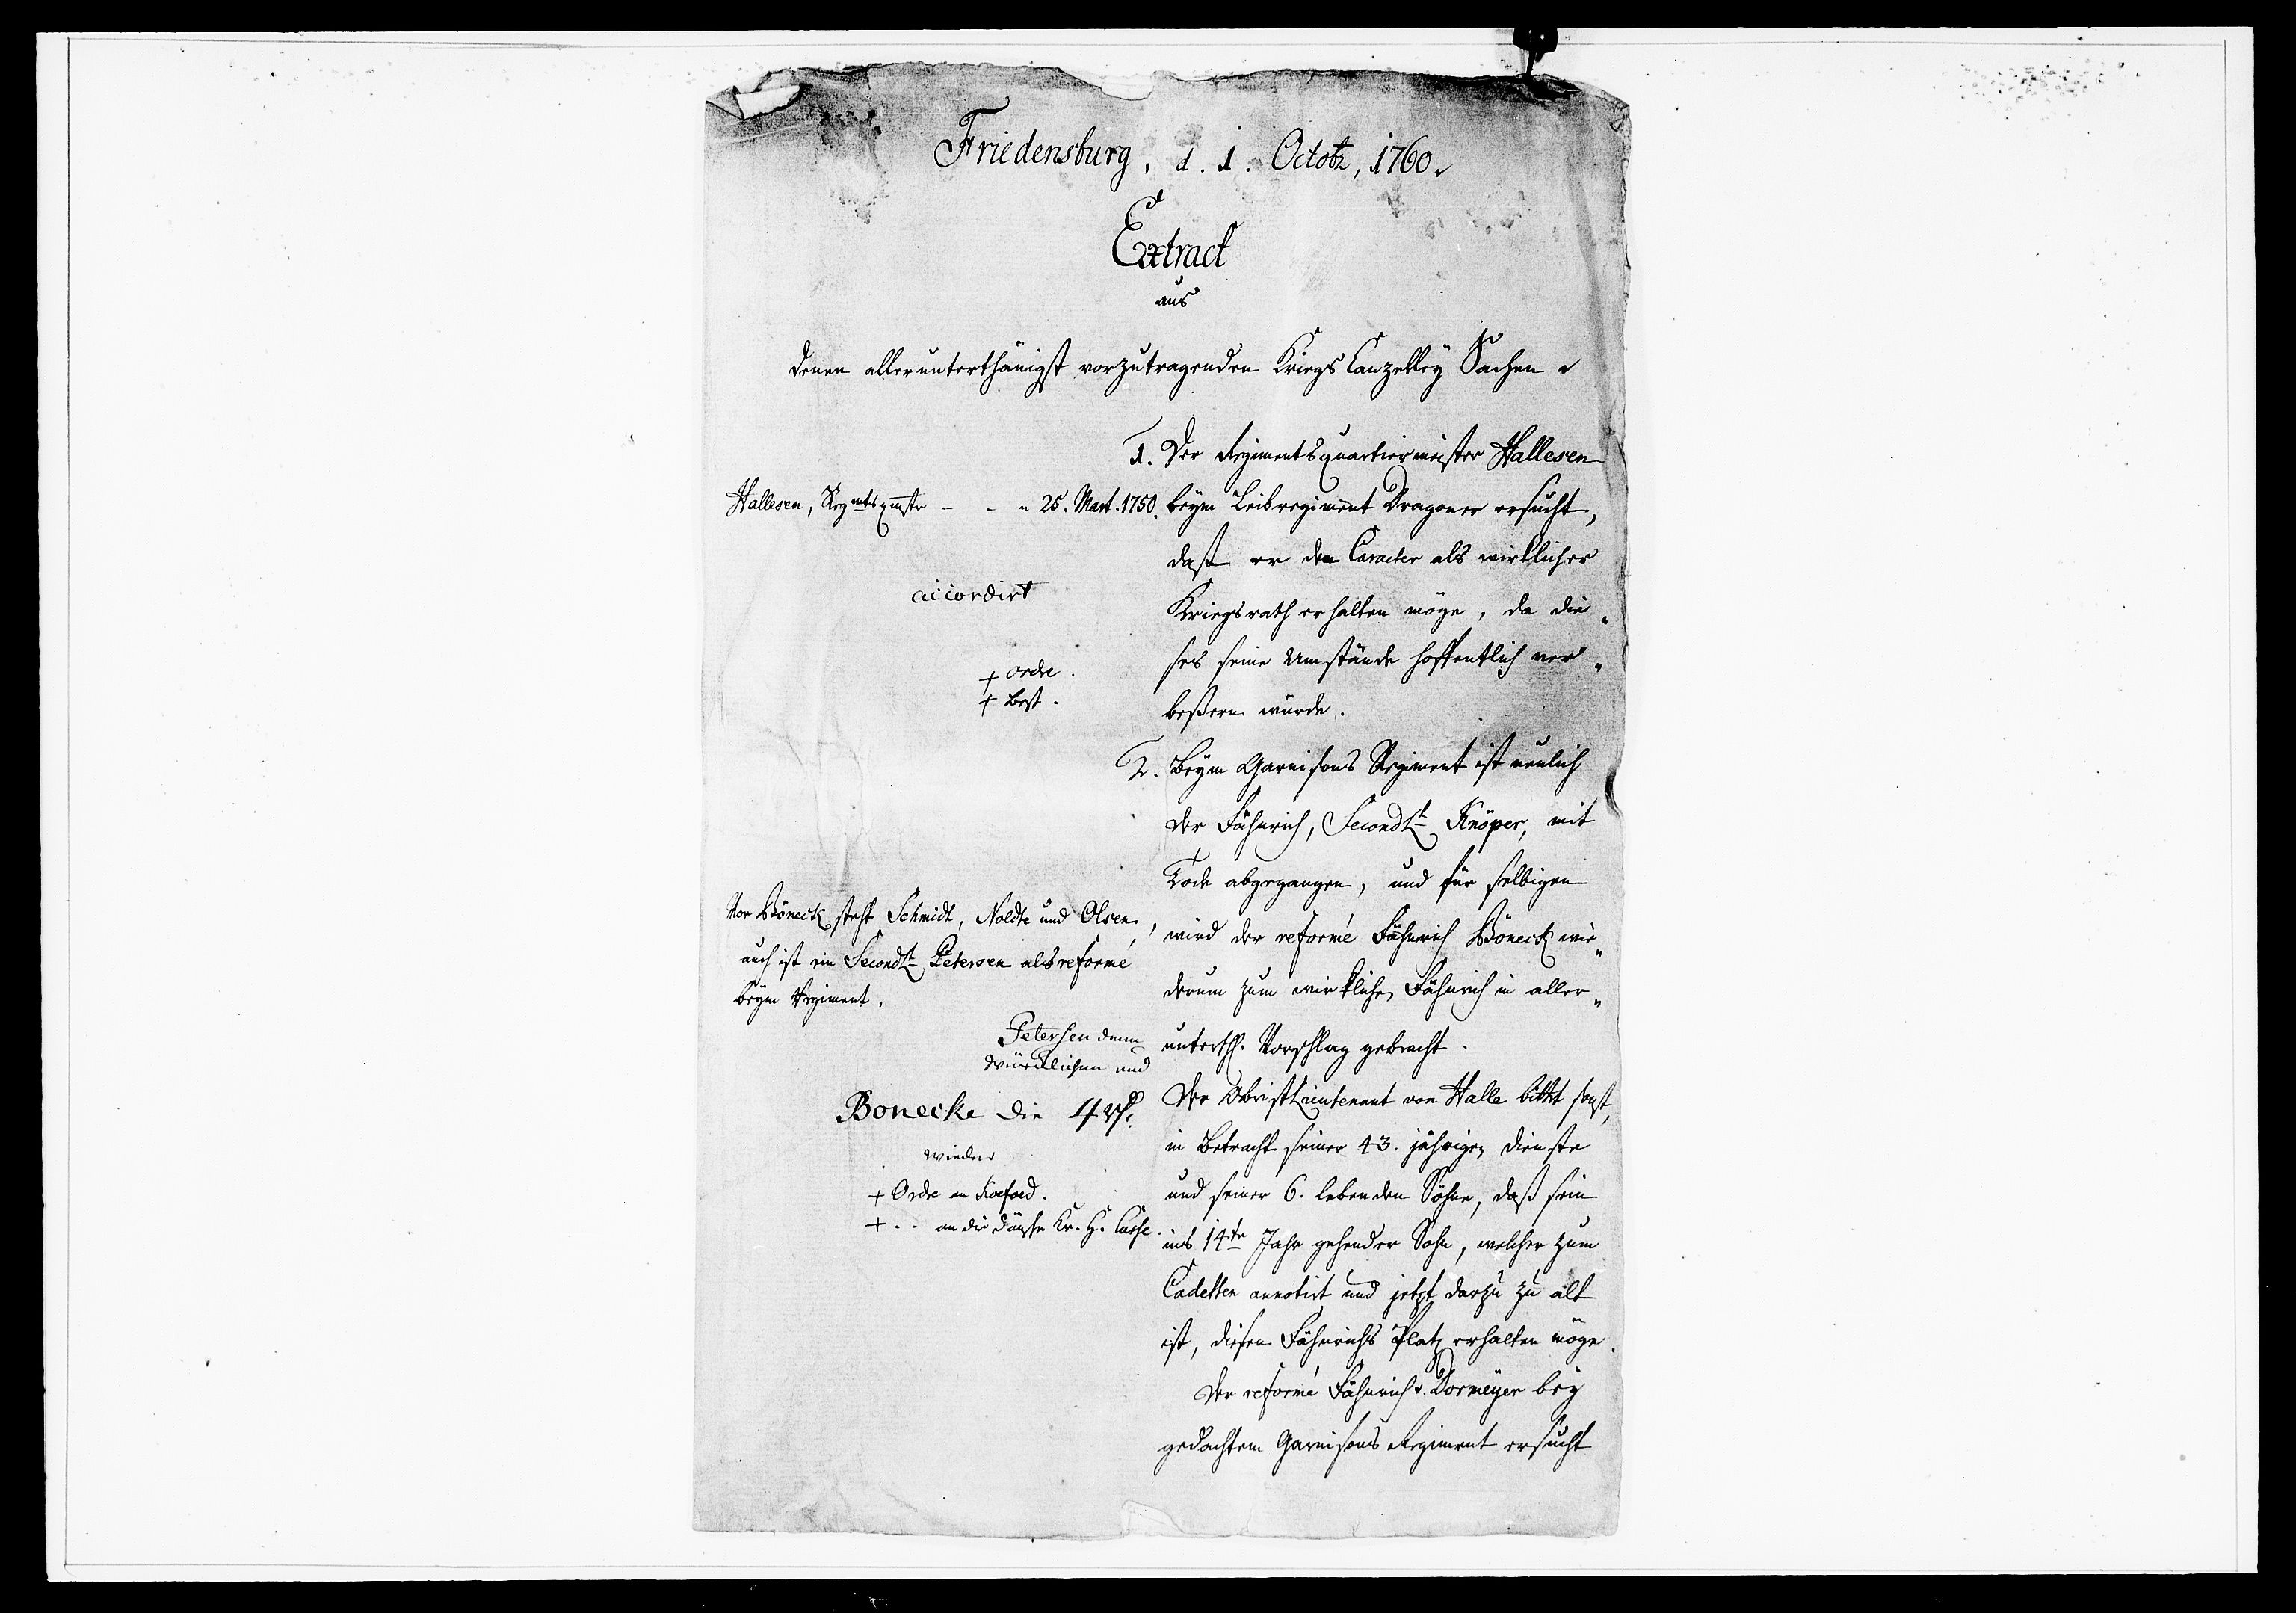 Friedensburg, d. 1. Octobr, 1760.
Extract
aus
denen allerunterthänigst vorzutragenden Kriegs Canzelley Sachen
1. Der Regimentsquartiermeister Hallesen
Hallesen, Regmtsqmstr - - - 25. Mart. 1750.
beym Leibregiment Dragoner ersucht,
daß er den Caracter als wirklicher
Kriegsrath erhalten möge, da die-
ses seine Umstände hoffentlich ver-
beßern würde.
accordirt
+ ordre.
+ Best.
2. Beym Garnisons Regiment ist neulich
der Fähnrich, SecondLt Knöper, mit
Tode abgegangen, und für selbigen
wird der reformé Fähnrich Böneck wie-
derum zum wirklichen Fähnrich in aller-
unterth. Vorschlag gebracht.
Vor Böneck steht Schmidt, Noldte und Olsen,
auch ist ein SecondLt Petersen als reformé
beym Regiment.
Petersen denn
würcklichen und
Bonecke die 4 rh.
wieder
+ Ordre an Koefoed.
+ - - an die Dänsche Kr. H. Casse.
Der Obristlieutenant von Halle bittet sonst,
in Betracht seiner 43. jährigen Dienste
und seiner 6. lebenden Söhne, daß sein
ins 14te Jahr gehender Sohn, welcher zum
Cadetten annotirt und jetzt darzu zu alt
ist, diesen Fähnrichs Platz erhalten möge.
Der reformé Fähnrich v. Dormeyer bey
gedachtem Garnisons Regiment ersucht